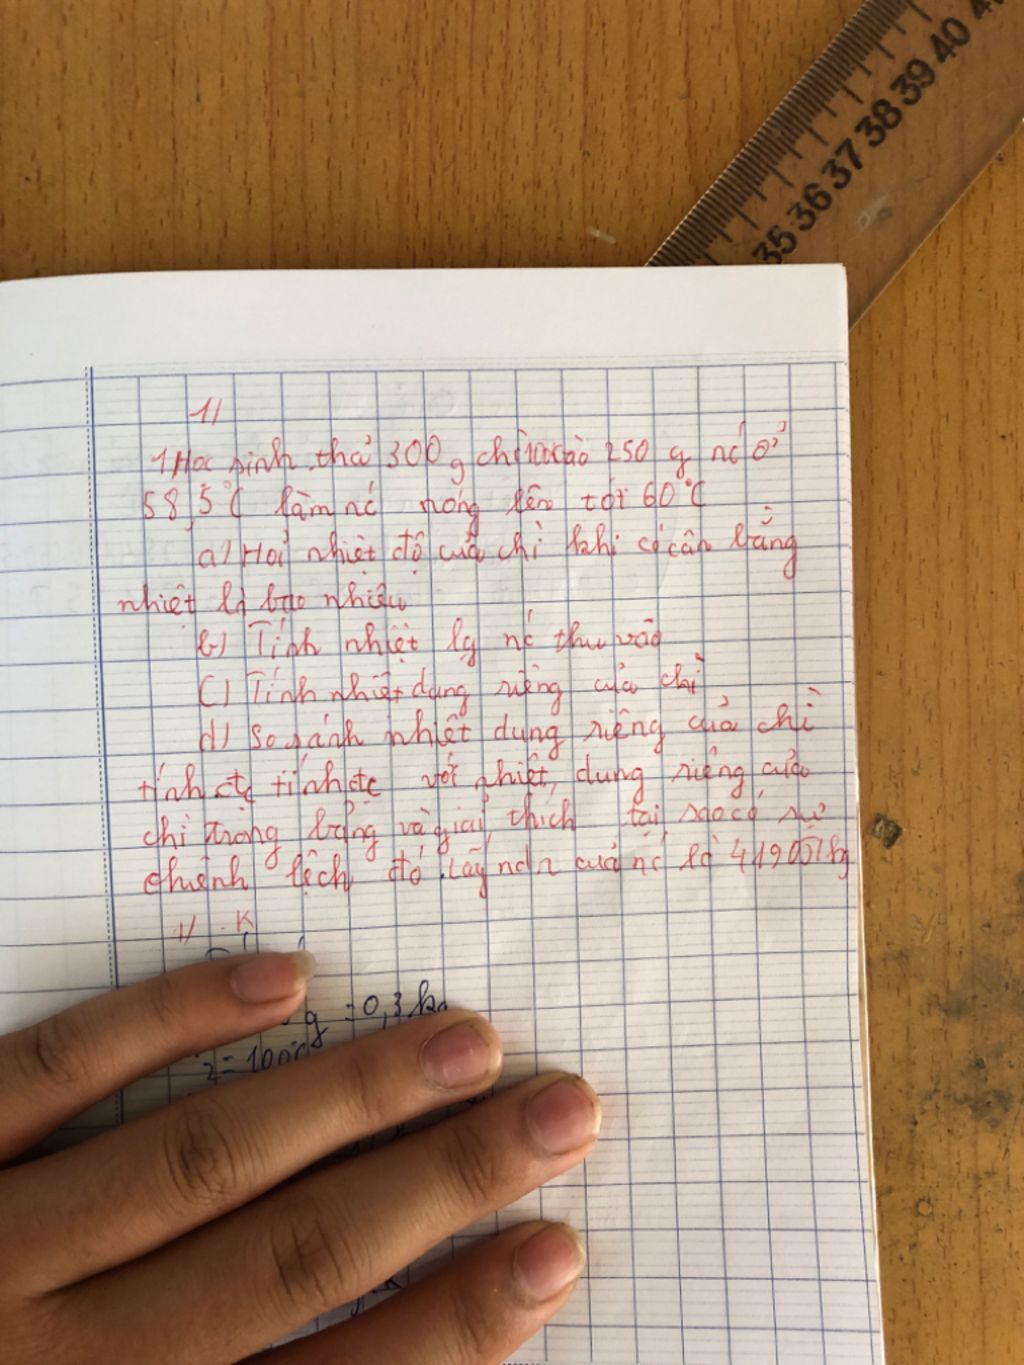 35 36 37 38 39 40 41
1/
1 Học sinh thả 300 g chì 100 vào 250 g nc ở
58,5°C làm nc nóng lên tới 60°C
a) Hỏi nhiệt độ của chì khi có cân bằng
nhiệt là bao nhiêu
b) Tính nhiệt lg nc thu vào
c) Tính nhiệt dung riêng của chì
d) So sánh nhiệt dung riêng của chì
tính đc với nhiệt dung riêng của
chì trong bảng và giải thích tại sao có sự
chênh lệch đó lấy ndr của nc là 4190J/kg
1/ .K
g = 0,3 kg
2 = 100°C